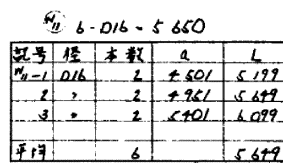 W11 6-D16=5650
記号 径 本数 a L
W11-1 D16 2 4501 5199
2 〃 2 4951 5649
3 〃 2 5401 6099
平均 6 5649